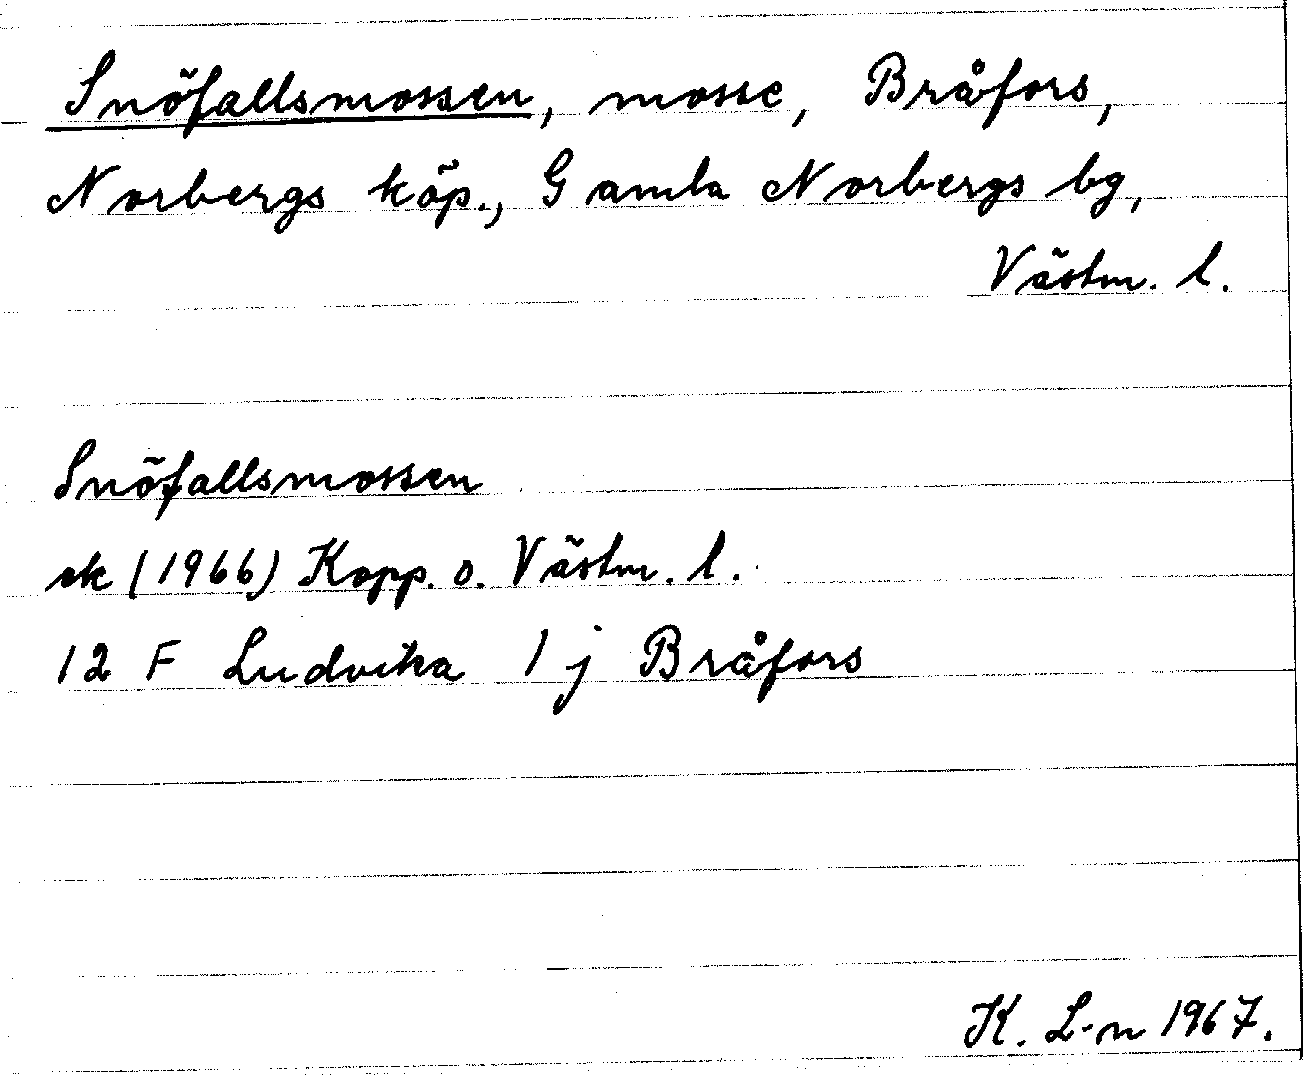 Snöfallsmossen, mosse, Bråfors,
Norbergs köp., Gamla Norbergs bg,
Västm. l.
Snöfallsmossen
ek (1966) Kopp. o. Västm. l.
12 F Ludvika 1 j Bråfors
K. L-n 1967.